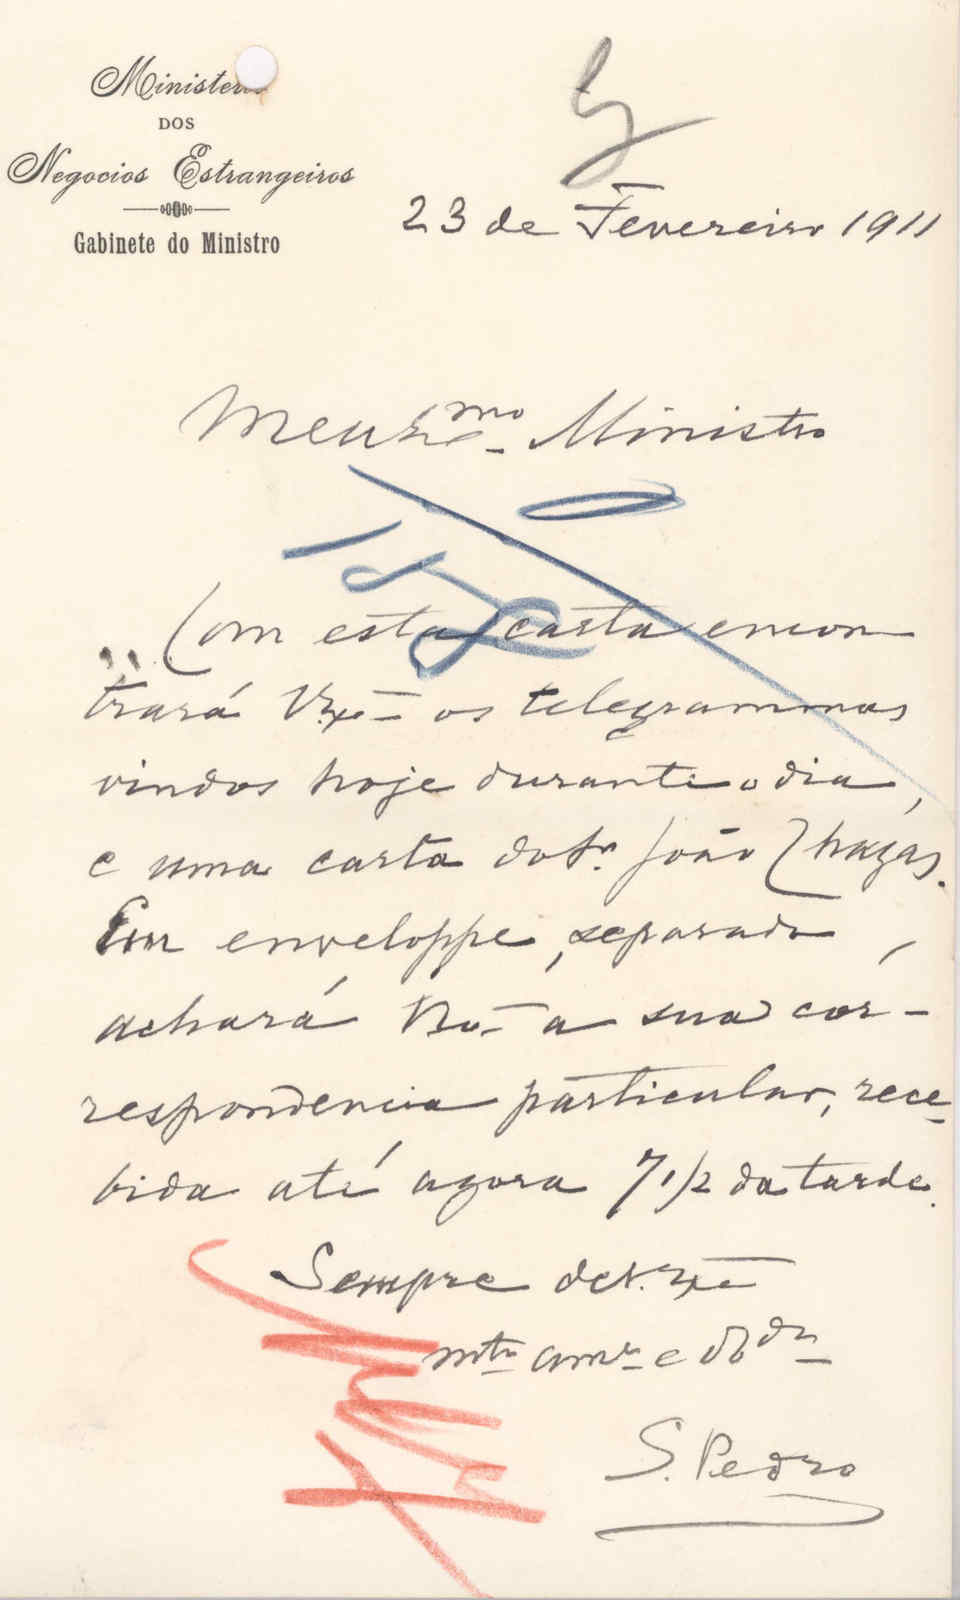 Ministerio
DOS
Negocios Estrangeiros
Gabinete do Ministro
23 de Fevereiro 1911
Meu Exmo. Ministro
Com esta carta encon
trará V. Exª os telegrammas
vindos hoje durante o dia,
e uma carta do Sr. João Chagas.
Em enveloppe, separado,
achará V. Exª a sua cor-
respondencia particular, rece-
bida até agora 7 1/2 da tarde.
Sempre de V. Exª
mto amo e obdo
S. Pedro